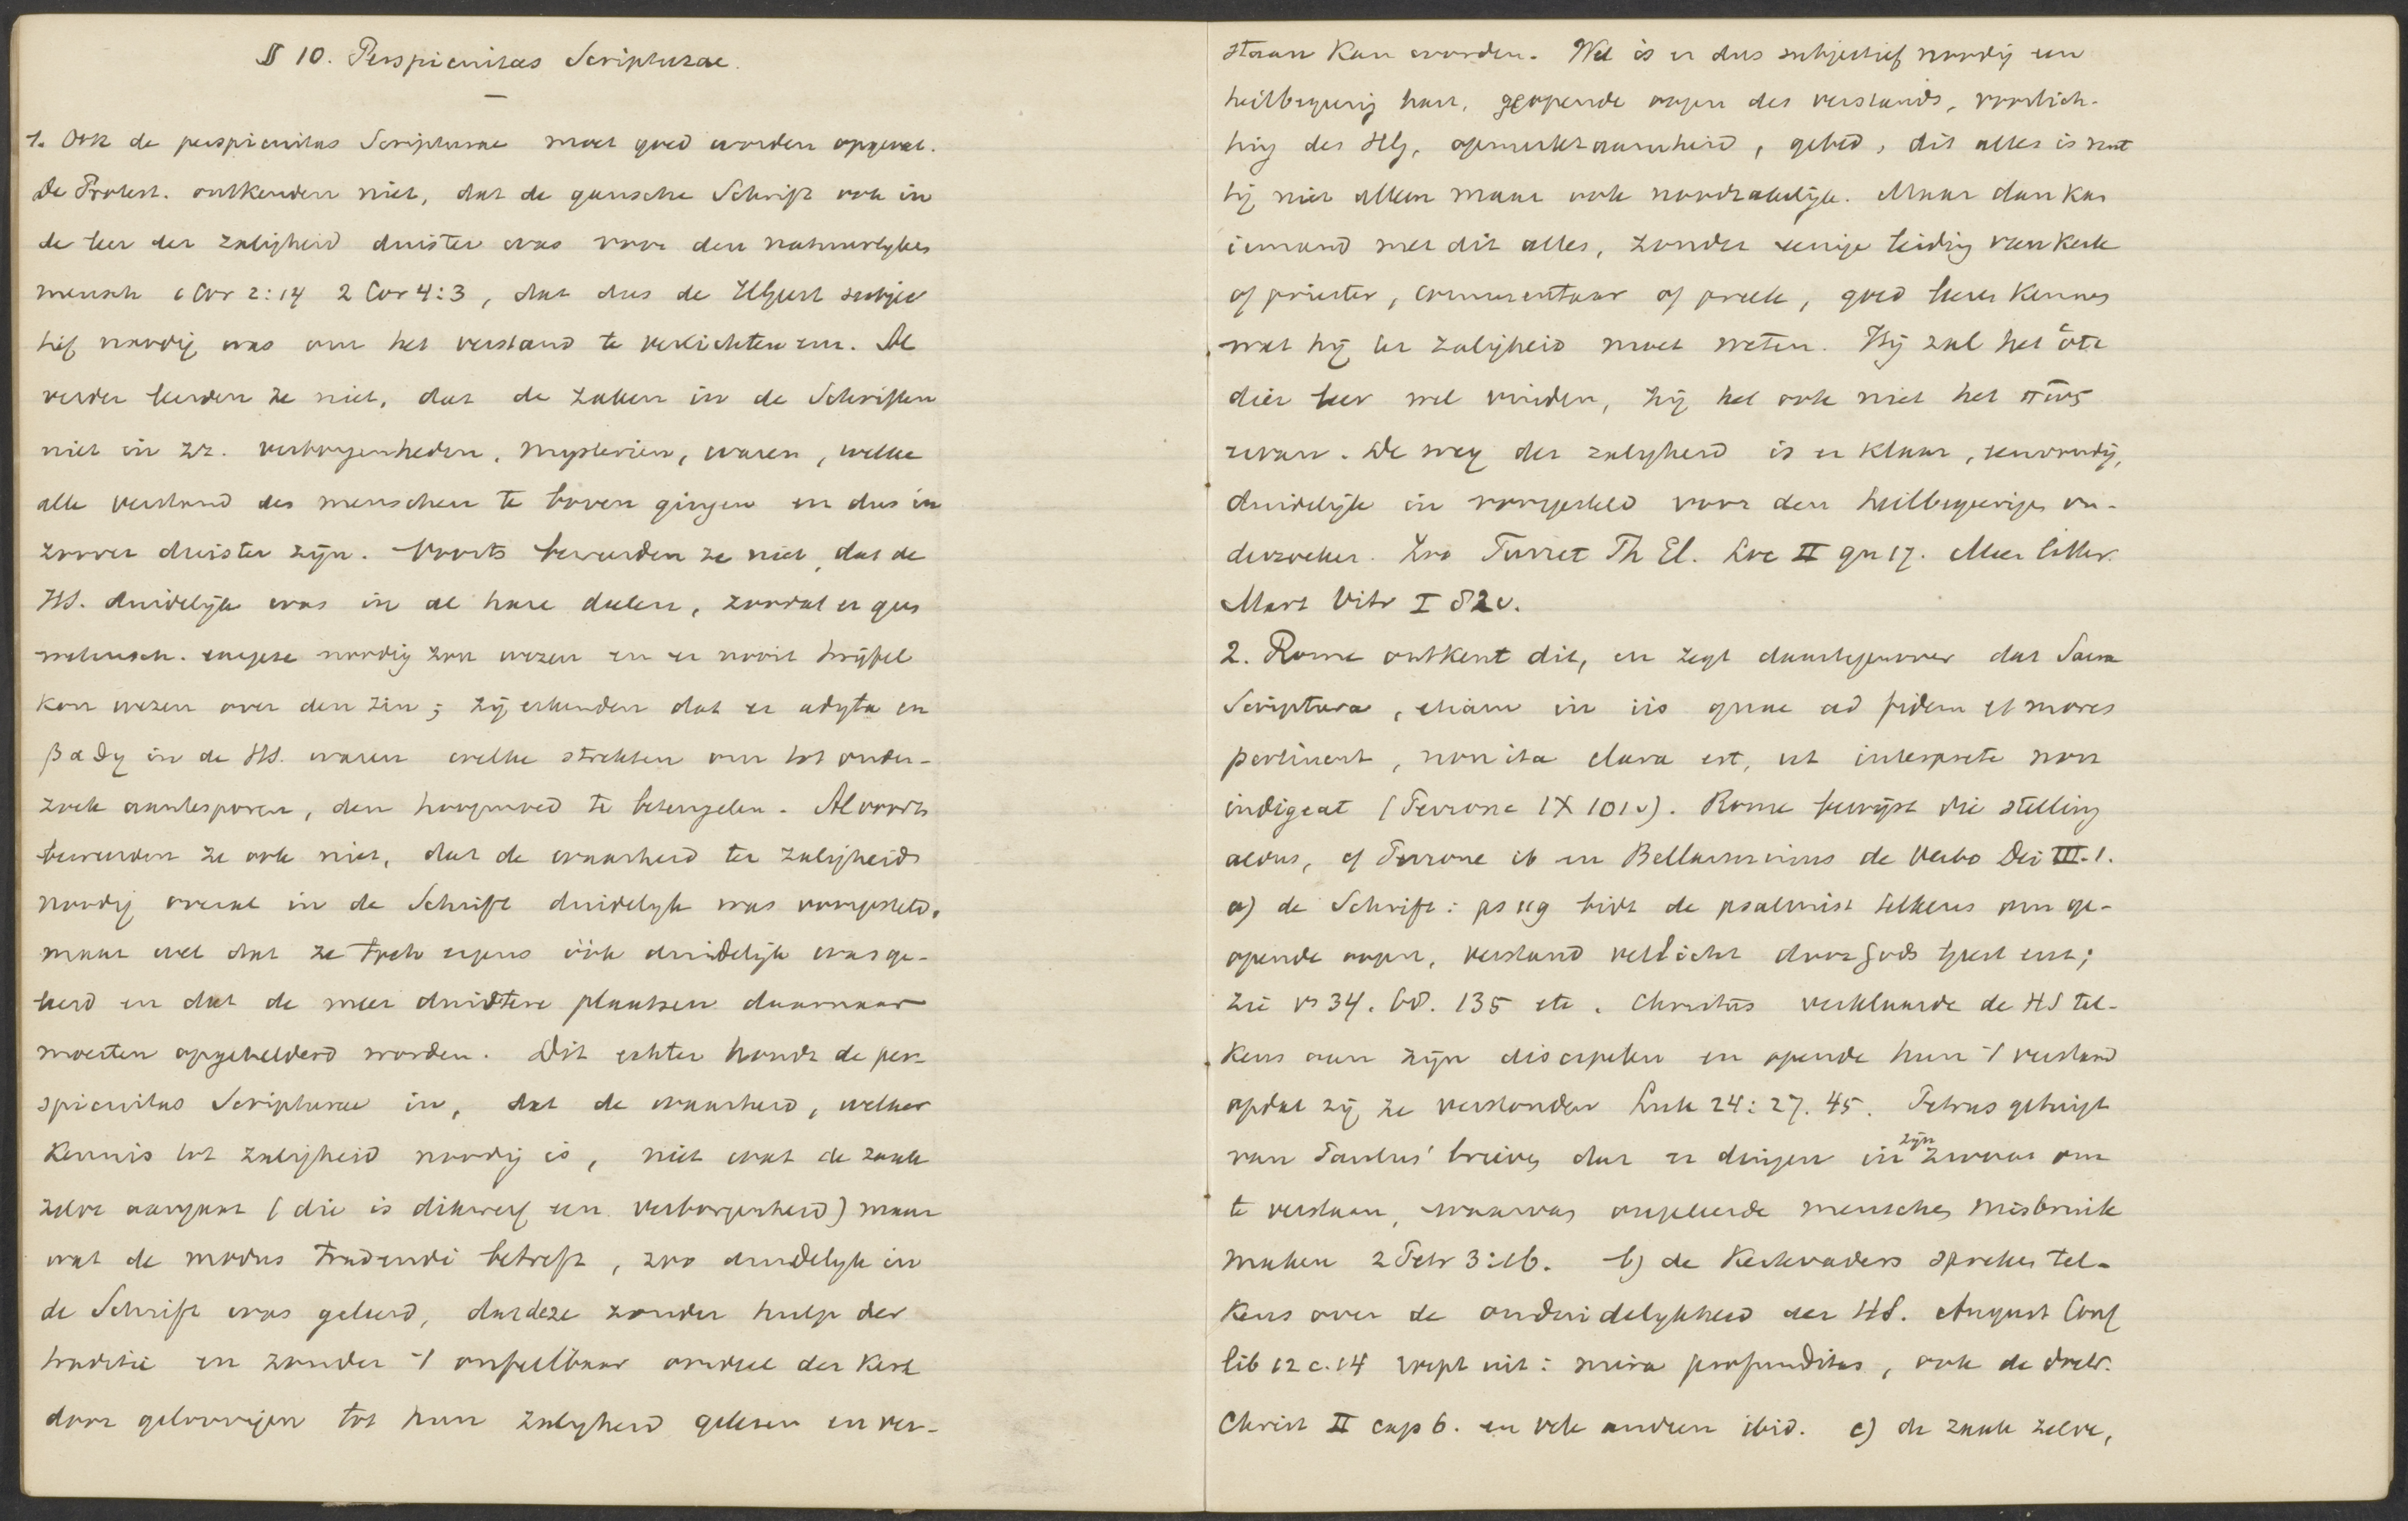 § 10. Perspicuitas Scripturae.
1. Ook de perspicuitas Scripturae moet goed worden opgevat.
De Protest. ontkenden niet, dat de gansche Schrift ook in
de leer der zaligheid duister was voor den natuurlyken
mensch 1 Cor 2:14 2 Cor 4:3, dat dus de HGeest subjec
tief noodig was om het verstand te verlichten enz. Al
verder leerden ze niet, dat de zaken in de Schriften
niet in zz. verborgenheden, mysterien, waren, welke
alle verstand des menschen te boven gingen en dus in
zoover duister zijn. Voorts beweerden ze niet, dat de
HS. duidelijk was in al hare deelen, zoodat er geen
wetensch. exegese noodig zou wezen en er nooit twijfel
kon wezen over den zin; zij erkenden dat er adyta en
βαθη in de HS. waren welke strekten om tot onder-
zoek aantesporen, den hoogmoed te beteugelen. Al voorts
beweerden ze ook niet, dat de waarheid ter zaligheid
noodig overal in de Schrift duidelyk was voorgesteld,
maar wel dat ze toch ergens óók duidelijk was ge-
leerd en dat de meer duistere plaatsen daarnaar
moesten opgehelderd worden. Dit echter houdt de per-
spicuitas Scripturae in, dat de waarheid, welker
kennis tot zaligheid noodig is, niet wat de zaak
zelve aangaat (die is dikwerf een verborgenheid) maar
wat de modus tradendi betreft, zoo duidelyk in
de Schrift was geleerd, dat deze zonder hulp der
traditie en zonder 't onfeilbaar oordeel der Kerk
door geloovigen tot hun zalygheid gelezen en ver-
staan kan worden. Wel is er dus subjectief noodig een
heilbegeerig hart, geopende oogen des verstands, voorlich-
ting des HG, opmerkzaamheid, gebed, dit alles is nut
tig niet alleen maar ook noodzakelijk. Maar dan kan
iemand met dit alles, zonder eenige leiding van Kerk
of priester, commentaar of preek, goed leeren kennen
wat hij ter zaligheid moet weten. Hij zal het ὅτι
dier leer wel vinden, zij het ook niet het πῶς
ervan. De weg der zalygheid is er klaar, eenvoudig,
duidelijk in voorgesteld voor den heilbegeerigen on-
derzoeker. Zoo Turret Th El. Loc II qu 17. Meer litter.
Mart Vitr I 82v.
2. Rome ontkent dit, en zegt daartegenover dat Sacra
Scriptura, etiam in iis quae ad fidem et mores
pertinent, non ita clara est, ut interprete non
indigeat (Perrone IX 101v). Rome bewijst die stelling
aldus, cf Perrone ib en Bellarminus de Verbo Dei III.1.
a) de Schrift: ps 119 bidt de psalmist telkens om ge-
opende oogen, verstand verlicht door Gods geest enz;
zie vs 34. 68. 135 etc. Christus verklaarde de HS tel-
kens aan zijn discipelen en opende hun 't verstand
opdat zij ze verstonden Luk 24:27. 45. Petrus getuigt
van Paulus' brieven dat er dingen in zijn zwaar om
te verstaan, waarvan ongeleerde menschen misbruik
maken 2 Petr 3:16. b) de Kerkvaders spreken tel-
kens over de onduidelykheid der HS. August Conf
lib 12 c. 14 roept uit: mira profunditas, ook de doctr.
Christ II cap 6. en vele anderen ibid. c) de zaak zelve,